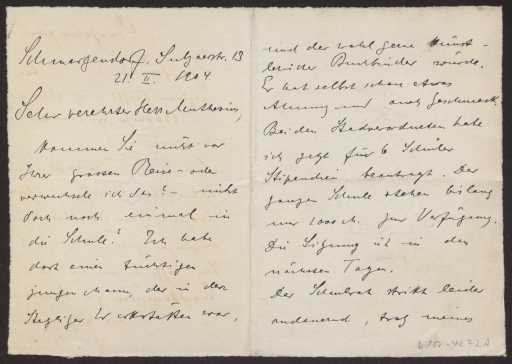 Schmargendorf. Sulzaerstr. 13
21. II. 1904
Sehr verehrter Herr Muthesius,
Kommen Sie nicht vor
Ihrer grossen Reise – oder
verwechsle ich das? – nicht
doch noch einmal in
die Schule? Ich habe
dort einen tüchtigen
jungen Mann, der in den
Steglitzer Werkstätten war,
und der wohl gerne Künst-
lerischer Buchbinder würde.
Er hat selbst schon etwas
Ahnung und auch Geschmack.
Bei den Stadtverordneten habe
ich jetzt für 6 Schüler
Stipendien beantragt. Der
ganzen Schule stehen bislang
nur 1000 M. zur Verfügung.
Die Sitzung ist in den
nächsten Tagen.
Der Schulrat streikt leider
andauernd, trotz meines